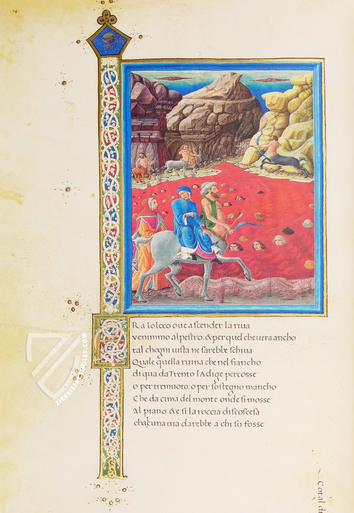 ERa lo loco oue a scender la riua
venimmo alpestro, & per quel che uera ancho
tal chogni uista ne sarebbe schiua
Quale quella ruina che nel fiancho
di qua da Trento l Adige percosse
o per tremuoto: o per sostegno mancho
Che da cima del monte onde si mosse
al piano & si la roccia discoscesa
chalcuna uia darebbe a chi su fosse
Cotal di